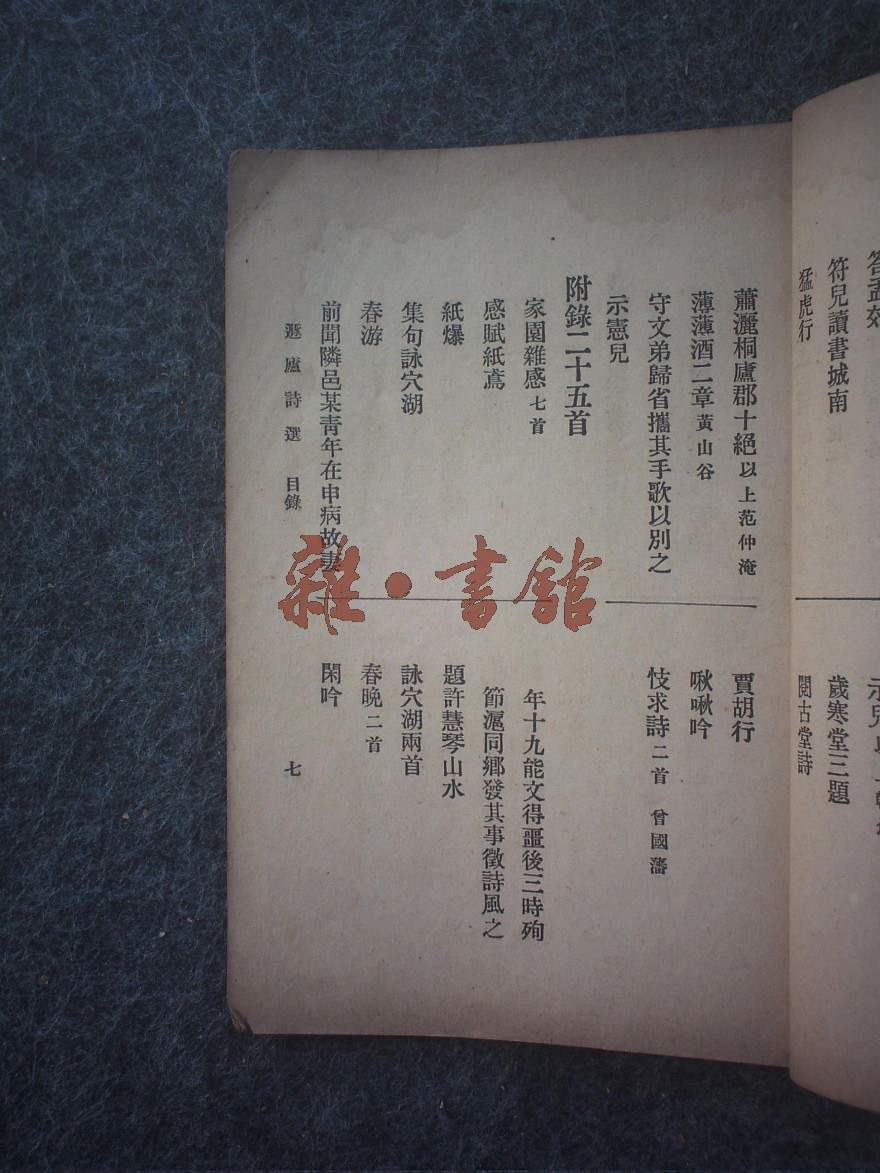 符兒讀書城南
猛虎行
歲寒堂三題
閱古堂詩
蕭灑桐廬郡十絕 以上范仲淹
薄薄酒二章 黃山谷
守文弟歸省攜其手歌以別之
示憲兒
賈胡行
啾啾吟
忮求詩 二首 曾國藩
附錄二十五首
家園雜感 七首
感賦紙鳶
紙爆
集句詠穴湖
春游
前聞隣邑某青年在申病故妻
年十九能文得噩後三時殉
節滬同鄉發其事徵詩風之
題許慧琴山水
詠穴湖兩首
春晚 二首
閑吟
遯廬詩選 目錄
七
雜·書館